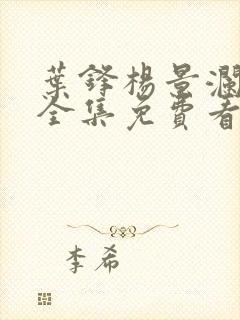 葉鋒楊景瀾
全集免費看
李希